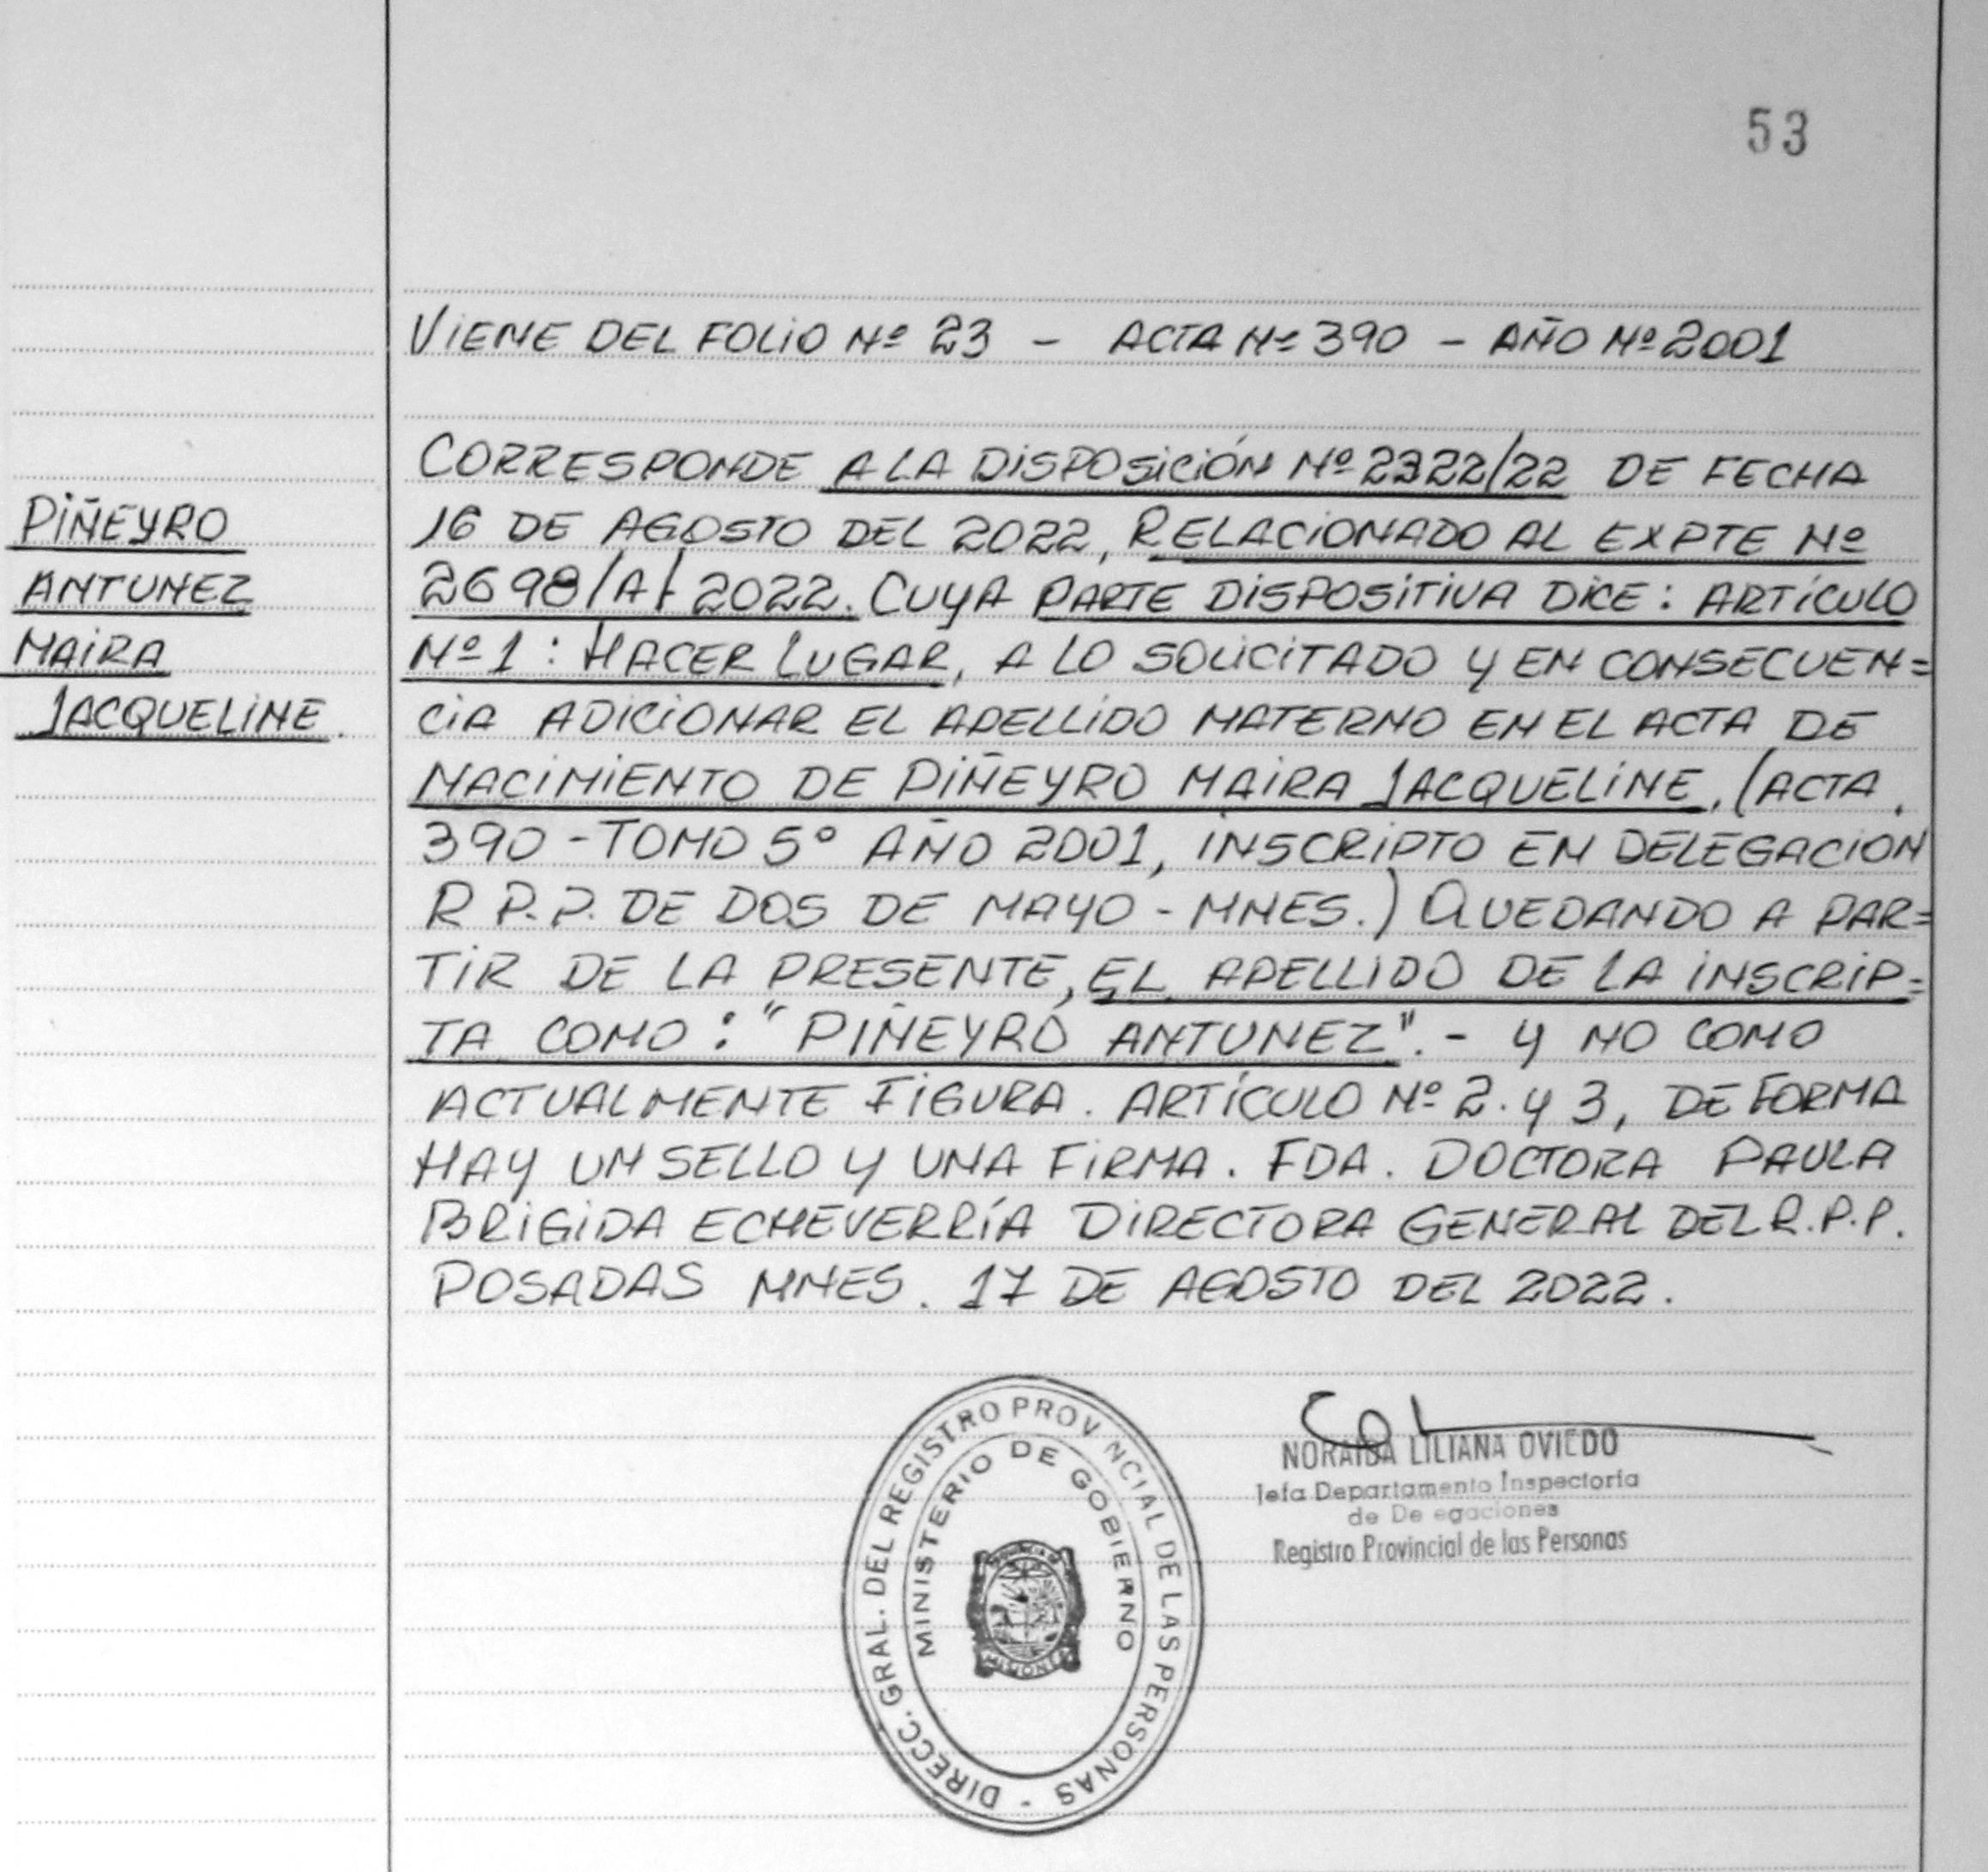 53
VIENE DEL FOLIO Nº 23 - ACTA Nº 390 - AÑO Nº 2001
PIÑEYRO
ANTUNEZ
MAIRA
JACQUELINE.
CORRESPONDE A LA DISPOSICIÓN Nº 2322/22 DE FECHA
16 DE AGOSTO DEL 2022, RELACIONADO AL EXPTE Nº
2698/A/2022. CUYA PARTE DISPOSITIVA DICE: ARTÍCULO
Nº 1: HACER LUGAR, A LO SOLICITADO Y EN CONSECUEN=
CIA ADICIONAR EL APELLIDO MATERNO EN EL ACTA DE
NACIMIENTO DE PIÑEYRO MAIRA JACQUELINE, (ACTA.
390 - TOMO 5º AÑO 2001, INSCRIPTO EN DELEGACION
R P.P. DE DOS DE MAYO - MNES.) QUEDANDO A PAR=
TIR DE LA PRESENTE, EL APELLIDO DE LA INSCRIP=
TA COMO: "PIÑEYRO ANTUNEZ".- Y NO COMO
ACTUALMENTE FIGURA. ARTÍCULO Nº 2. Y 3, DE FORMA
HAY UN SELLO Y UNA FIRMA. FDA. DOCTORA PAULA
BRIGIDA ECHEVERRÍA DIRECTORA GENERAL DEL R.P.P.
POSADAS MNES. 17 DE AGOSTO DEL 2022.
DIRECC. GRAL. DEL REGISTRO PROVINCIAL DE LAS PERSONAS -
MINISTERIO DE GOBIERNO
MISIONES
NORAIDA LILIANA OVIEDO
Jefa Departamento Inspectoría
de Delegaciones
Registro Provincial de las Personas